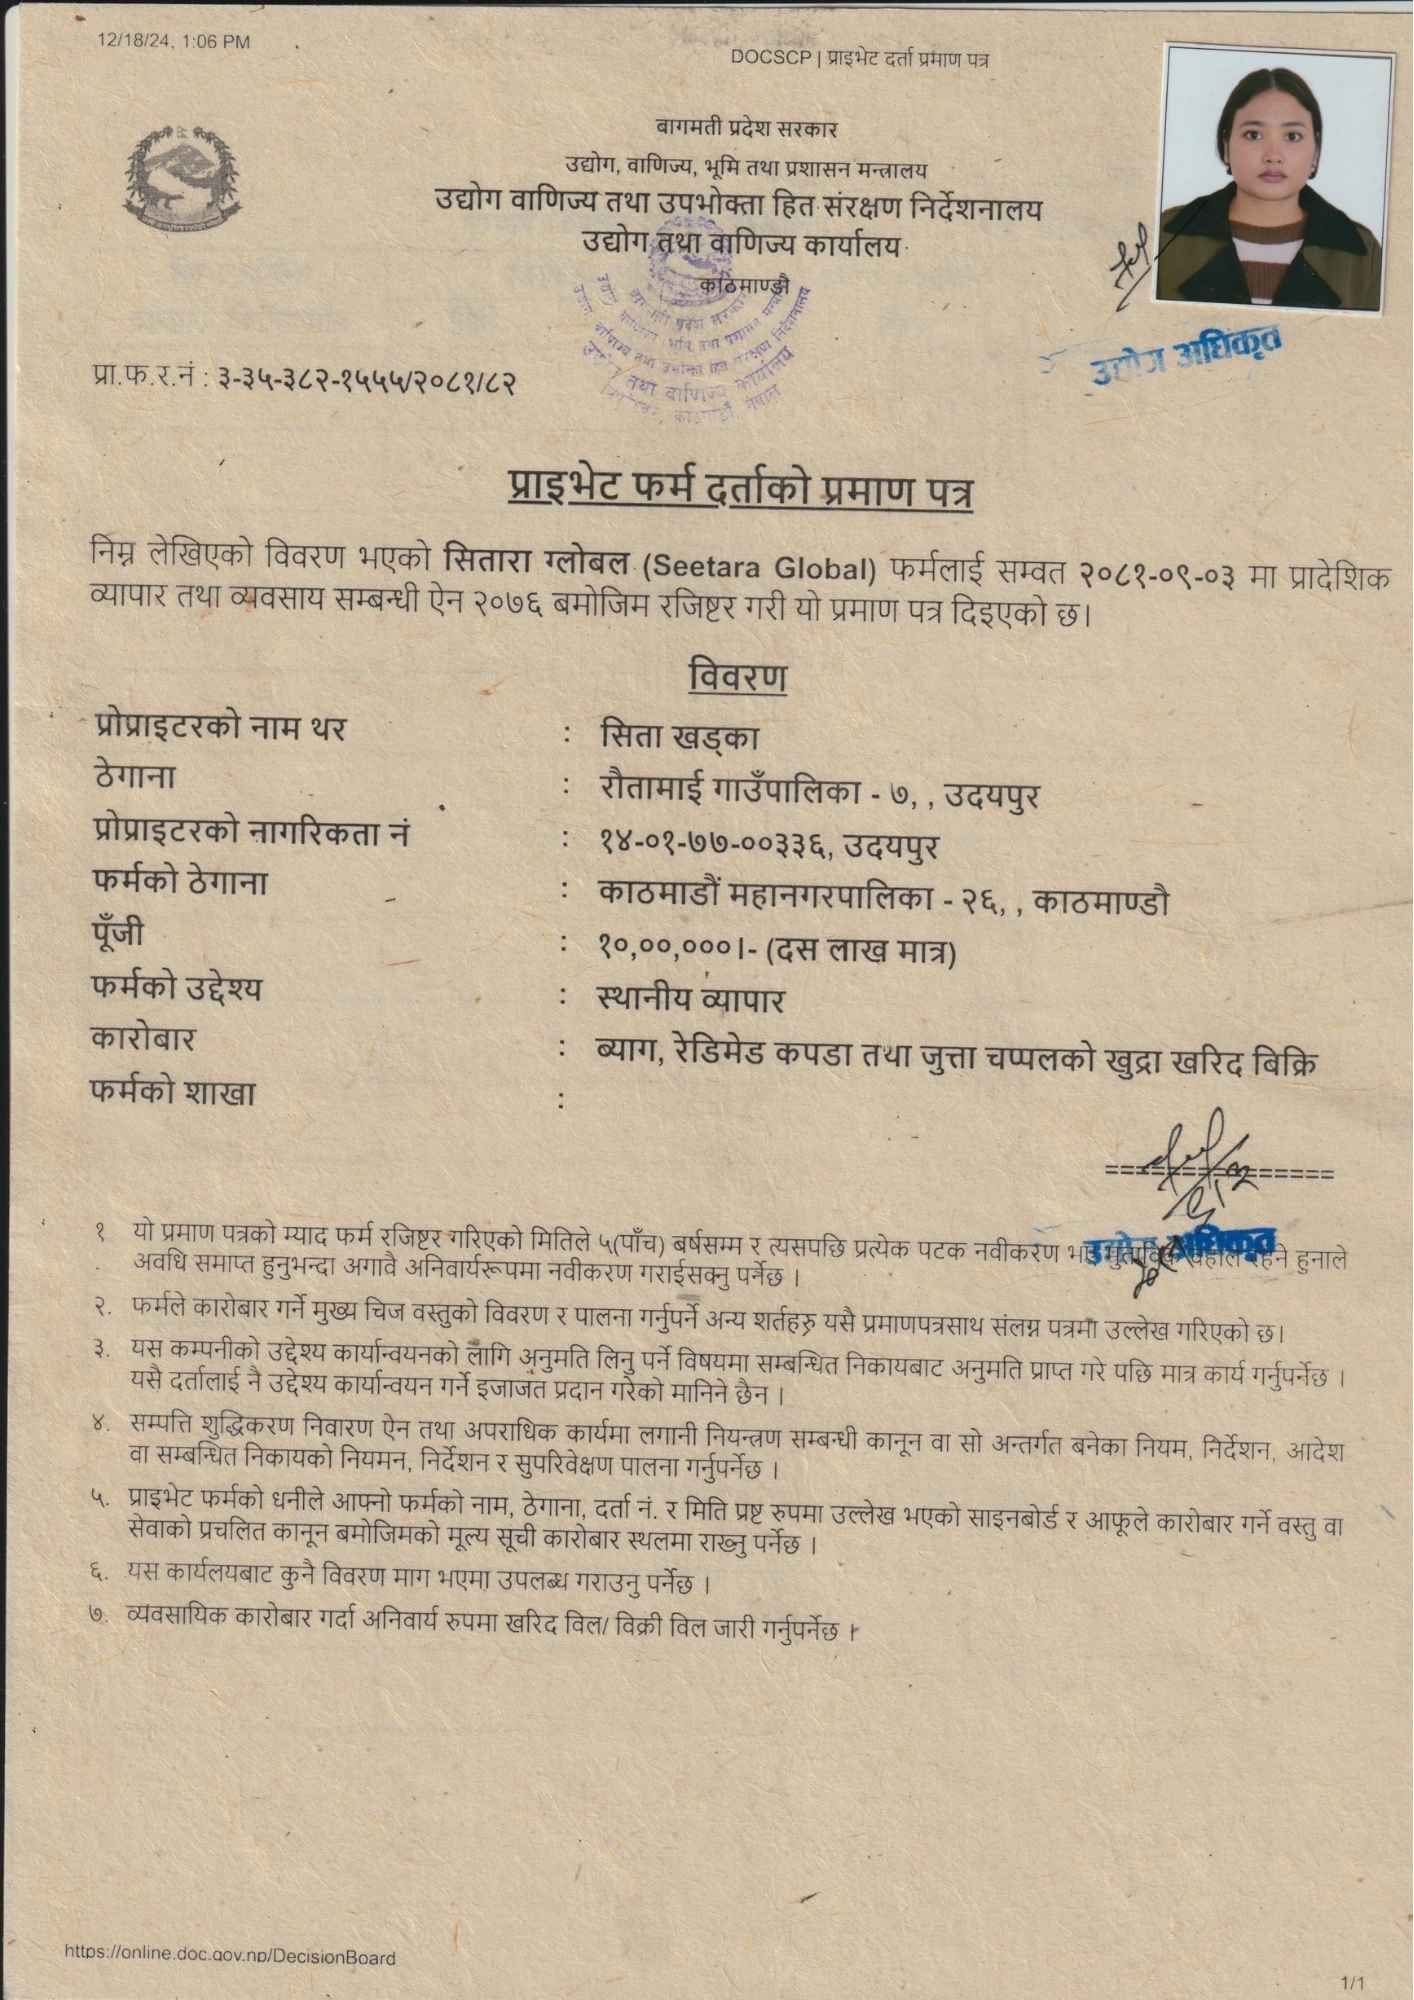 12/18/24, 1:06 PM
DOCSCP | प्राइभेट दर्ता प्रमाण पत्र
बागमती प्रदेश सरकार
उद्योग, वाणिज्य, भूमि तथा प्रशासन मन्त्रालय
उद्योग वाणिज्य तथा उपभोक्ता हित संरक्षण निर्देशनालय
उद्योग तथा वाणिज्य कार्यालय
काठमाण्डौ
उद्योग अधिकृत
प्रा.फ.र.नं : ३-३५-३८२-१५५५/२०८१/८२
प्राइभेट फर्म दर्ताको प्रमाण पत्र
निम्न लेखिएको विवरण भएको सितारा ग्लोबल (Seetara Global) फर्मलाई सम्वत २०८१-०९-०३ मा प्रादेशिक
व्यापार तथा व्यवसाय सम्बन्धी ऐन २०७६ बमोजिम रजिष्टर गरी यो प्रमाण पत्र दिइएको छ।
विवरण
प्रोप्राइटरको नाम थर : सिता खड्का
ठेगाना : रौतामाई गाउँपालिका - ७, , उदयपुर
प्रोप्राइटरको नागरिकता नं : १४-०१-७७-००३३६, उदयपुर
फर्मको ठेगाना : काठमाडौं महानगरपालिका - २६, , काठमाण्डौ
पूँजी : १०,००,०००।- (दस लाख मात्र)
फर्मको उद्देश्य : स्थानीय व्यापार
कारोबार : ब्याग, रेडिमेड कपडा तथा जुत्ता चप्पलको खुद्रा खरिद बिक्रि
फर्मको शाखा :
उद्योग अधिकृत
१ यो प्रमाण पत्रको म्याद फर्म रजिष्टर गरिएको मितिले ५(पाँच) बर्षसम्म र त्यसपछि प्रत्येक पटक नवीकरण रहने हुनाले
अवधि समाप्त हुनुभन्दा अगावै अनिवार्यरूपमा नवीकरण गराईसक्नु पर्नेछ ।
२. फर्मले कारोबार गर्ने मुख्य चिज वस्तुको विवरण र पालना गर्नुपर्ने अन्य शर्तहरु यसै प्रमाणपत्रसाथ संलग्न पत्रमा उल्लेख गरिएको छ।
३. यस कम्पनीको उद्देश्य कार्यान्वयनको लागि अनुमति लिनु पर्ने विषयमा सम्बन्धित निकायबाट अनुमति प्राप्त गरे पछि मात्र कार्य गर्नुपर्नेछ ।
यसै दर्तालाई नै उद्देश्य कार्यान्वयन गर्ने इजाजत प्रदान गरेको मानिने छैन ।
४. सम्पत्ति शुद्धिकरण निवारण ऐन तथा अपराधिक कार्यमा लगानी नियन्त्रण सम्बन्धी कानून वा सो अन्तर्गत बनेका नियम, निर्देशन, आदेश
वा सम्बन्धित निकायको नियमन, निर्देशन र सुपरिवेक्षण पालना गर्नुपर्नेछ ।
५. प्राइभेट फर्मको धनीले आफ्नो फर्मको नाम, ठेगाना, दर्ता नं. र मिति प्रष्ट रुपमा उल्लेख भएको साइनबोर्ड र आफूले कारोबार गर्ने वस्तु वा
सेवाको प्रचलित कानून बमोजिमको मूल्य सूची कारोबार स्थलमा राख्नु पर्नेछ ।
६. यस कार्यलयबाट कुनै विवरण माग भएमा उपलब्ध गराउनु पर्नेछ ।
७. व्यवसायिक कारोबार गर्दा अनिवार्य रुपमा खरिद विल/ विक्री विल जारी गर्नुपर्नेछ ।
https://online.doc.gov.np/DecisionBoard
1/1